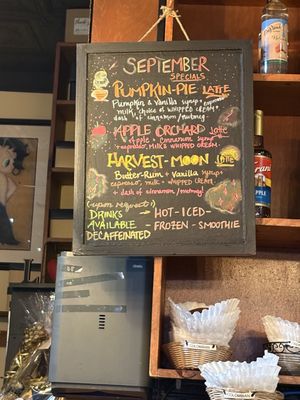 SEPTEMBER
SPECIALS
PUMPKIN-PIE LATTE
Pumpkin & Vanilla syrup
espresso
milk, choice of WHIPPED CREAM
dash of cinnamon/nutmeg
APPLE ORCHARD Latte
Apple & Cinnamon syrup
espresso, milk & WHIPPED CREAM
HARVEST-MOON Latte
Butter-Rum + Vanilla syrup
espresso, milk & WHIPPED CREAM
+ dash of cinnamon/nutmeg
(upon request)
DRINKS - HOT - ICED -
AVAILABLE - FROZEN - SMOOTHIE
DECAFFEINATED
Torani